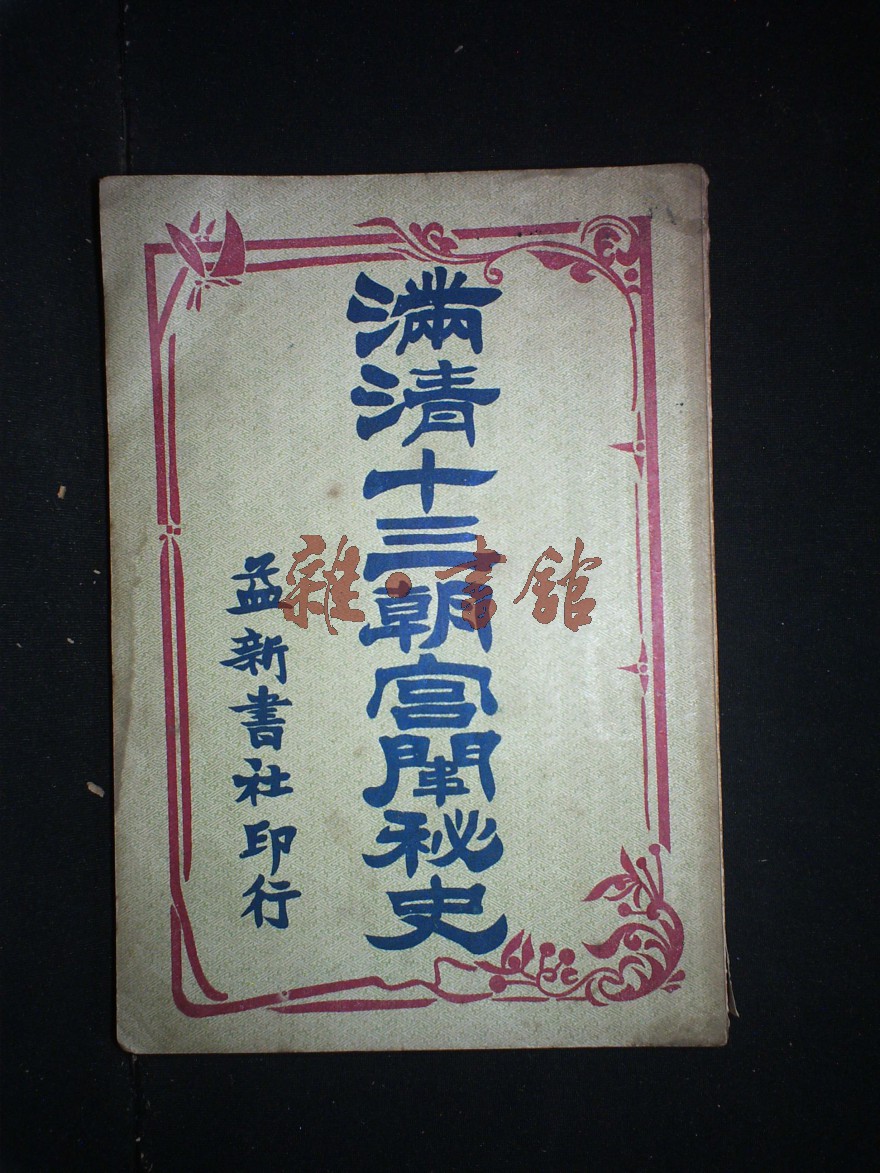 滿清十三朝宮闈秘史
益新書社印行
雜·書舘